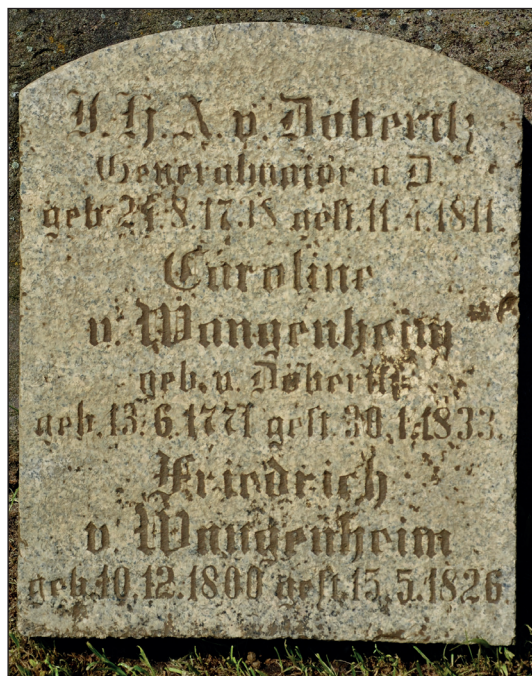 v. Döberitz
Generalmajor a D.
geb 8. gest. 11. 1811.
Caroline
v. Wangenheim
geb. v. Döberitz
geb. 13. 6. 1771 gest. 30. 1. 1833.
Friedrich
v. Wangenheim
geb. 10. 12. 1800 gest. 15. 5. 1826